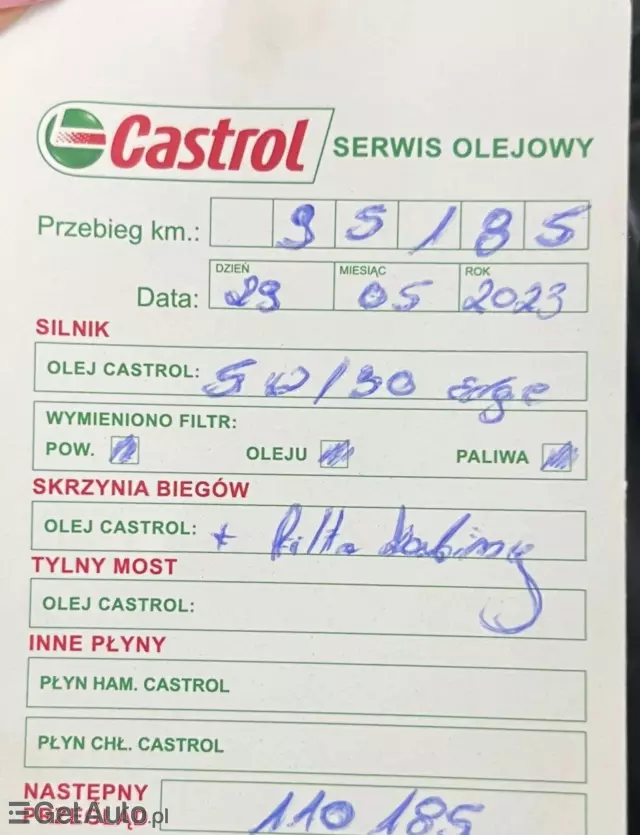 Castrol SERWIS OLEJOWY
Przebieg km.: 95185
DZIEŃ MIESIĄC ROK
Data: 29 05 2023
SILNIK
OLEJ CASTROL: 5w/30 edge
WYMIENIONO FILTR:
POW. OLEJU PALIWA
SKRZYNIA BIEGÓW
OLEJ CASTROL: + filtr kabinowy
TYLNY MOST
OLEJ CASTROL:
INNE PŁYNY
PŁYN HAM. CASTROL
PŁYN CHŁ. CASTROL
NASTĘPNY
PRZEGLĄD: 110 185
GetAuto.pl